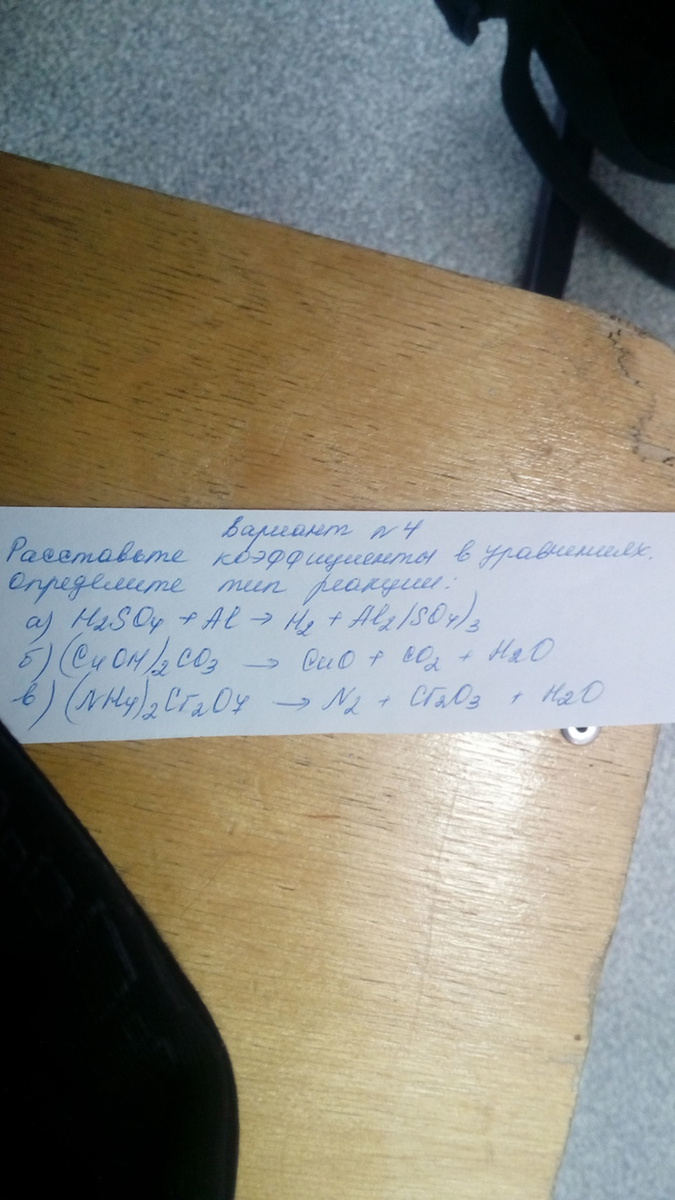 Вариант №4
Расставьте коэффициенты в уравнениях.
Определите тип реакции:
а) H2SO4 + Al → H2 + Al2(SO4)3
б) (CuOH)2CO3 → CuO + CO2 + H2O
в) (NH4)2Cr2O7 → N2 + Cr2O3 + H2O